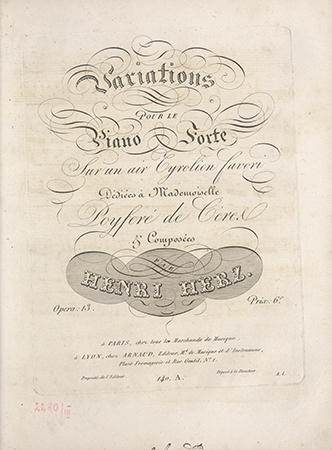 Variations
POUR LE
Piano Forte
Sur un air Tyrolien favori
Dédiées à Mademoiselle
Peyferé de Cere
& Composées
PAR
HENRI HERZ.
Opera: 13.
Prix: 6f
à PARIS, chez tous les Marchands de Musique
à LYON, chez ARNAUD, Editeur, Md. de Musique et d'Instrumens,
Place Fromagerie et Rue Gentil, No. 1.
Propriété de l'Editeur
Déposé à la Direction
140. A.
A.L
2240/III